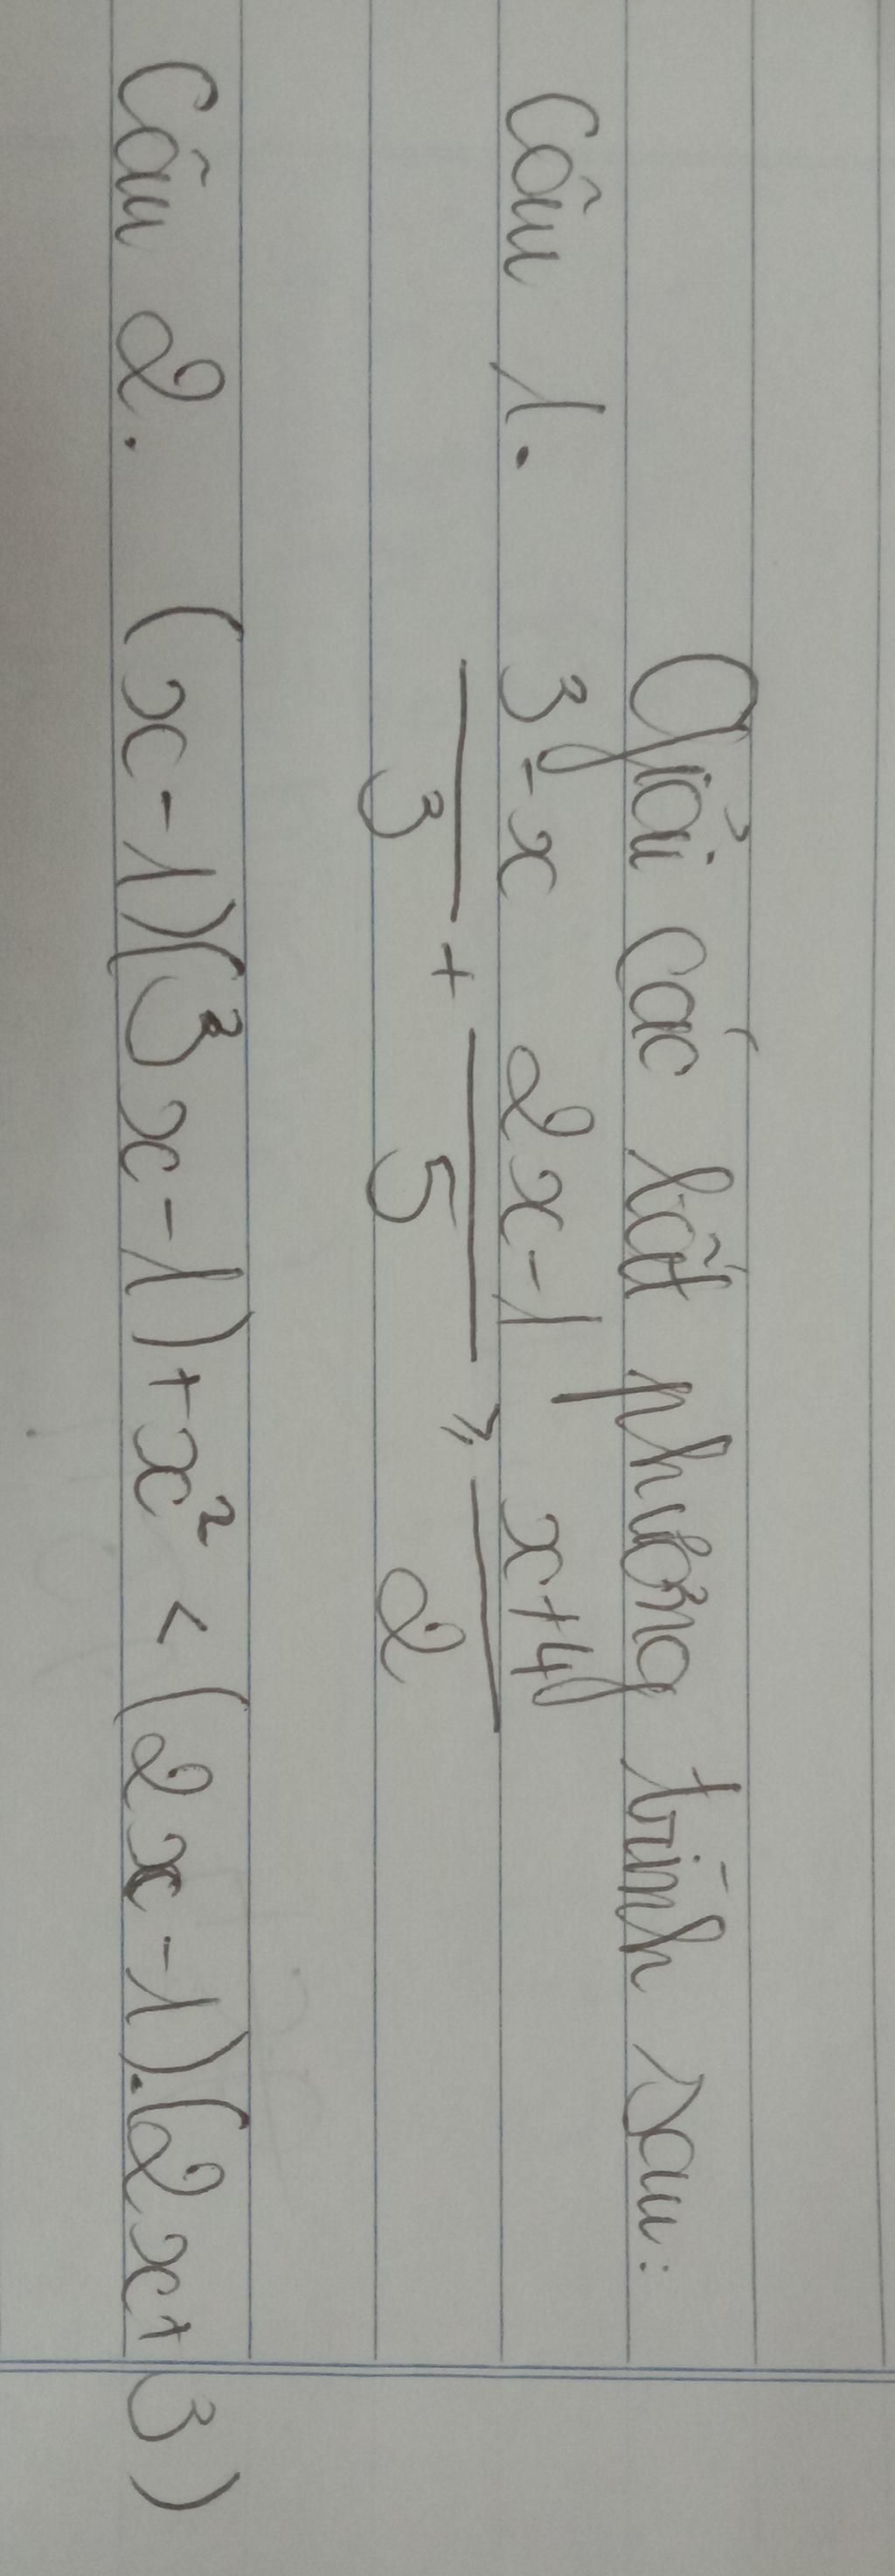 Giải các bất phương trình sau:
Câu 1. \frac{3-x}{3} + \frac{2x-1}{5} ⩾ \frac{x+4}{2}
Câu 2. (x-1)(3x-1)+x² < (2x-1).(2x+3)